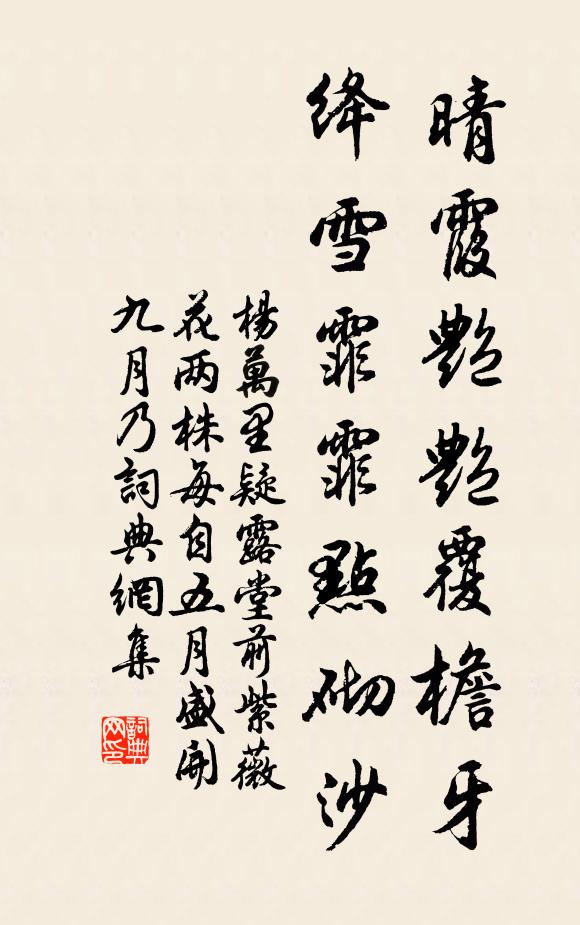 晴霞艷艷覆檐牙
絳雪霏霏點砌沙
楊萬里疑露堂前紫薇
花两株每自五月盛開
九月乃詞典網集
詞典
网印